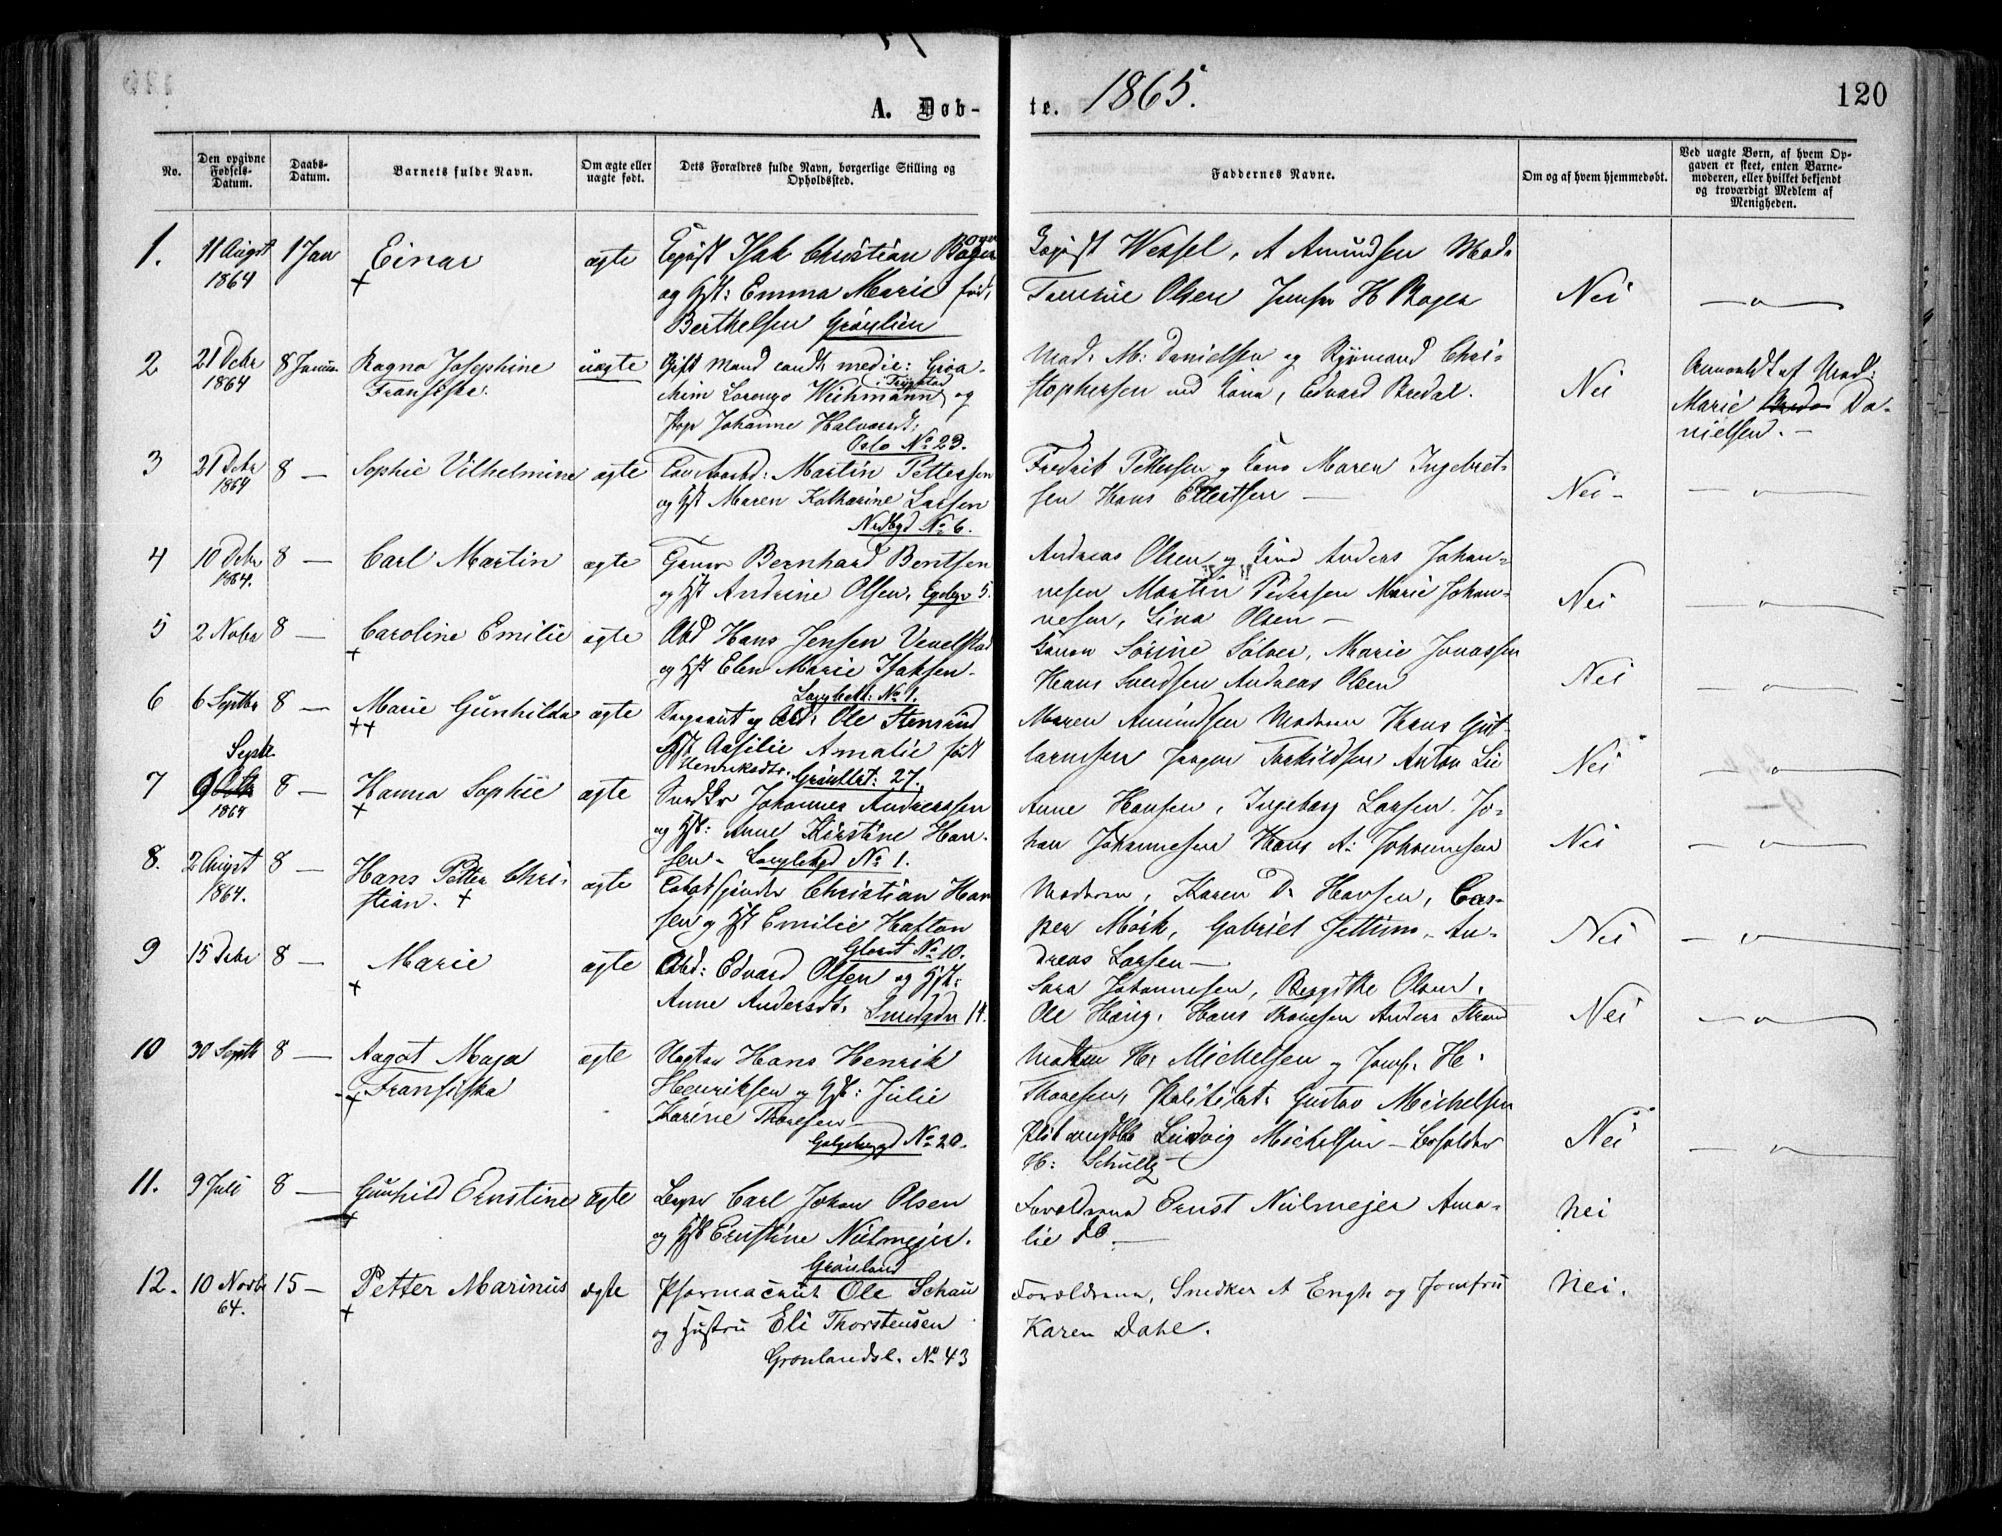 1865.
120
A. Døb-
te.
No.
Den opgivne Fødsels-Datum.
Daabs-Datum.
Barnets fulde Navn.
Om ægte eller uægte født.
Dets Forældres fulde Navn, borgerlige Stilling og Opholdssted.
Faddernes Navne.
Om og af hvem hjemmedøbt.
Ved uægte Børn, af hvem Op-
gaven er skeet, enten Barne-
moderen, eller hvilket bekjendt
og troværdigt Medlem af
Menigheden.
1. 11 August 1864 1 Jan Einar ægte
Isak Christian Boyer
og Hst: Emma Marie fød,
Berthelsen Grønlien
Wessel, A Amundsen Mad.
Olsen Jomfr H Boyer
Nei
2 21 Debr 1864 8 Januar Ragna Josephine
Fransiska. uægte
Gift Mand cand: medic: Gioa-
chim Lorenzo Wichmann og
Pige Johanne Halvorsdt:
Oslo No 23.
Mad. M: Danielsen og Chri-
stophersen Edvard Bredal.
Nei
Anmeldt af Mad:
Marie Da-
nielsen. -
3 21 Debr 1864 8 — Sophie Vilhelmine ægte
Martin Pettersen
og Hst Maren Katharine Larsen
No 6.
Fredrik Pettersen og Kone Maren Ingebret-
sen Hans Ellertsen —
Nei -
4 10 Debr 1864. 8 — Carl Martin ægte
Bernhard Bentsen
og Hst Andrine Olsen, 5.
Andreas Olsen og Anders Johan-
nesen Martin Pedersen Marie Johan-
nesen, Lina Olsen —
Nei
5 2 Nobr 8 — Caroline Emilie ægte
Abd Hans Jensen Vevelstad
og Hst Elen Marie Isaksen.
No 1.
Sørine Sølver, Marie Jonassen
Hans Svendsen Andreas Olsen
Nei
6 6 Septbr 8 — Marie Gunhilda ægte
Sergeant og Ole Stensrud
Hst Aasilie Amalie født
Henriksdtr. 27.
Maren Amundsen Moderen Hans Gut-
tormsen Jørgen Torkildsen Anton Lie
Nei
7 Septbr 9 1864 8 — Hanna Sophie ægte
Johannes Andreassen
og Hst: Anne Kirstine Han-
sen - No 1.
Anne Hansen, Ingeborg Larsen. Jo-
han Johannesen Hans A: Johannesen
Nei
8. 2 August 1864. 8 — Hans Petter Chri-
stian. ægte
Christian Han
sen og Hst Emilie Hafton
No 10.
Moderen, Karen D. Hansen, Cas-
per Mørk, Gabriel An-
dreas Larsen —
Nei
9 15 Debr 8 — Marie ægte
Abd: Edvard Olsen og Hst:
Anne Andersdt. Smedgdn 14.
Sara Johannesen, Birgitte Olsen.
Ole Haug, Hans Thoresen Anders Strand
Nei
10 30 Septbr 8 — Aagot Maja
Fransiska ægte
Slagter Hans Henrik
Henriksen og Hst: Julie
Karine Thoresen
No 20.
H. Michelsen og Jomf. H.
Thoresen, Gustav Michelsen
Ludvig Michelsen -
H: Schultz
Nei
11. 9 Juli 8 — Gunhild Ernstine ægte
Carl Johan Olsen
og Hst Ernstine Nielmejer.
Grønland
Forældrene Ernst Nielmejer Ama-
lie do —
Nei
12. 10 Novbr 64. 15 — Petter Marinus ægte
Pharmaceut Ole Schau
og Hustru Eli Thorstensen
Grønlandsl. No 43
Forældrene, Snedker A Engh og Jomfru
Karen Dahl.
Nei.